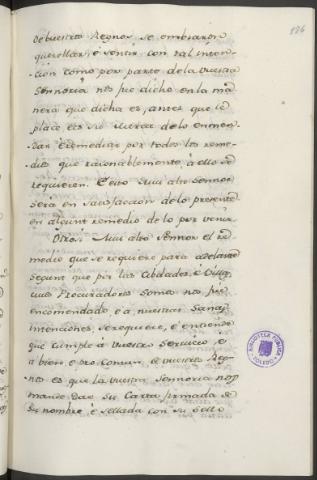 186
de vuestros Regnos se embiaron
querellar, é sentir con tal inten-
cion como por parte de la vuestra
Sennoria nos fue dicho en la ma-
nera que dicha es, antes que le
place es su jurar de lo enmen-
dar é remediar por todos los reme-
dios que razonablemente a ello se
requieren. E esto mui alto Sennor
será en satisfaccion de lo presente
en algunt remedio de lo por venir.
Otrosi Mui alto Sennor el re-
medio que se requiere para adelante
segunt que por las Cibdades, é Villas
cuios Procuradores somos nos fue
encomendado, é a nuestras sanas
intenciones, se requiere, é entiende
que cumple á vuestro servicio, é
a bien é pro comun de vuestros Reg-
nos es que la vuestra Sennoria nos
mande dar su Carta firmada de
su nombre, é sellada con su sello
BIBLIOTECA PUBLICA
TOLEDO